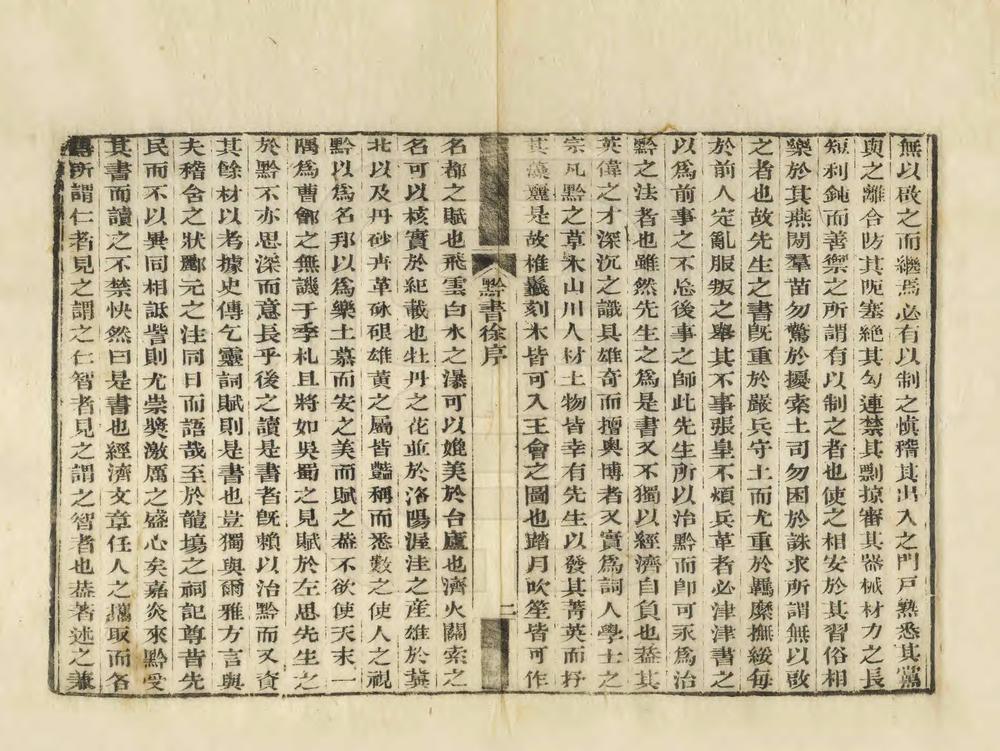 無以啟之而繼焉必有以制之慎稽其出入之門戸熟悉其黨
與之離合防其阨塞絶其勾連禁其剽掠審其器械材力之長
短利鈍而善禦之所謂有以制之者也使之相安於其習俗相
樂於其燕閒羣苗勿驚於擾索土司勿困於誅求所謂無以啟
之者也故先生之書旣重於嚴兵守土而尤重於羈縻撫綏每
於前人定亂服叛之舉其不事張皇不煩兵革者必津津書之
以爲前事之不忘後事之師此先生所以治黔而卽可永爲治
黔之法者也雖然先生之爲是書又不獨以經濟自負也葢其
英偉之才深沉之識具雄奇而擅奥博者又實爲詞人學士之
宗凡黔之草木山川人材土物皆幸有先生以發其菁英而抒
其藻麗是故椎髻刻木皆可入王會之圖也踏月吹笙皆可作
黔書徐序
二
名都之賦也飛雲白水之瀑可以媲美於台廬也濟火關索之
名可以核實於紀載也牡丹之花並於洛陽渥洼之産雄於冀
北以及丹砂卉革砯硍雄黄之屬皆豔稱而悉數之使人之視
黔以爲名邦以爲樂土慕而安之美而賦之葢不欲使天末一
隅爲曹鄶之無譏于季札且將如吳蜀之見賦於左思先生之
於黔不亦思深而意長乎後之讀是書者旣賴以治黔而又資
其餘材以考據史傳乞靈詞賦則是書也豈獨與爾雅方言與
夫稽含之狀酈元之注同日而語哉至於龍塲之祠記尊昔先
民而不以異同相詆訾則尤崇奬激厲之盛心矣嘉炎來黔受
其書而讀之不禁怏然曰是書也經濟文章任人之攜取而各
得所謂仁者見之謂之仁智者見之謂之智者也葢著述之兼